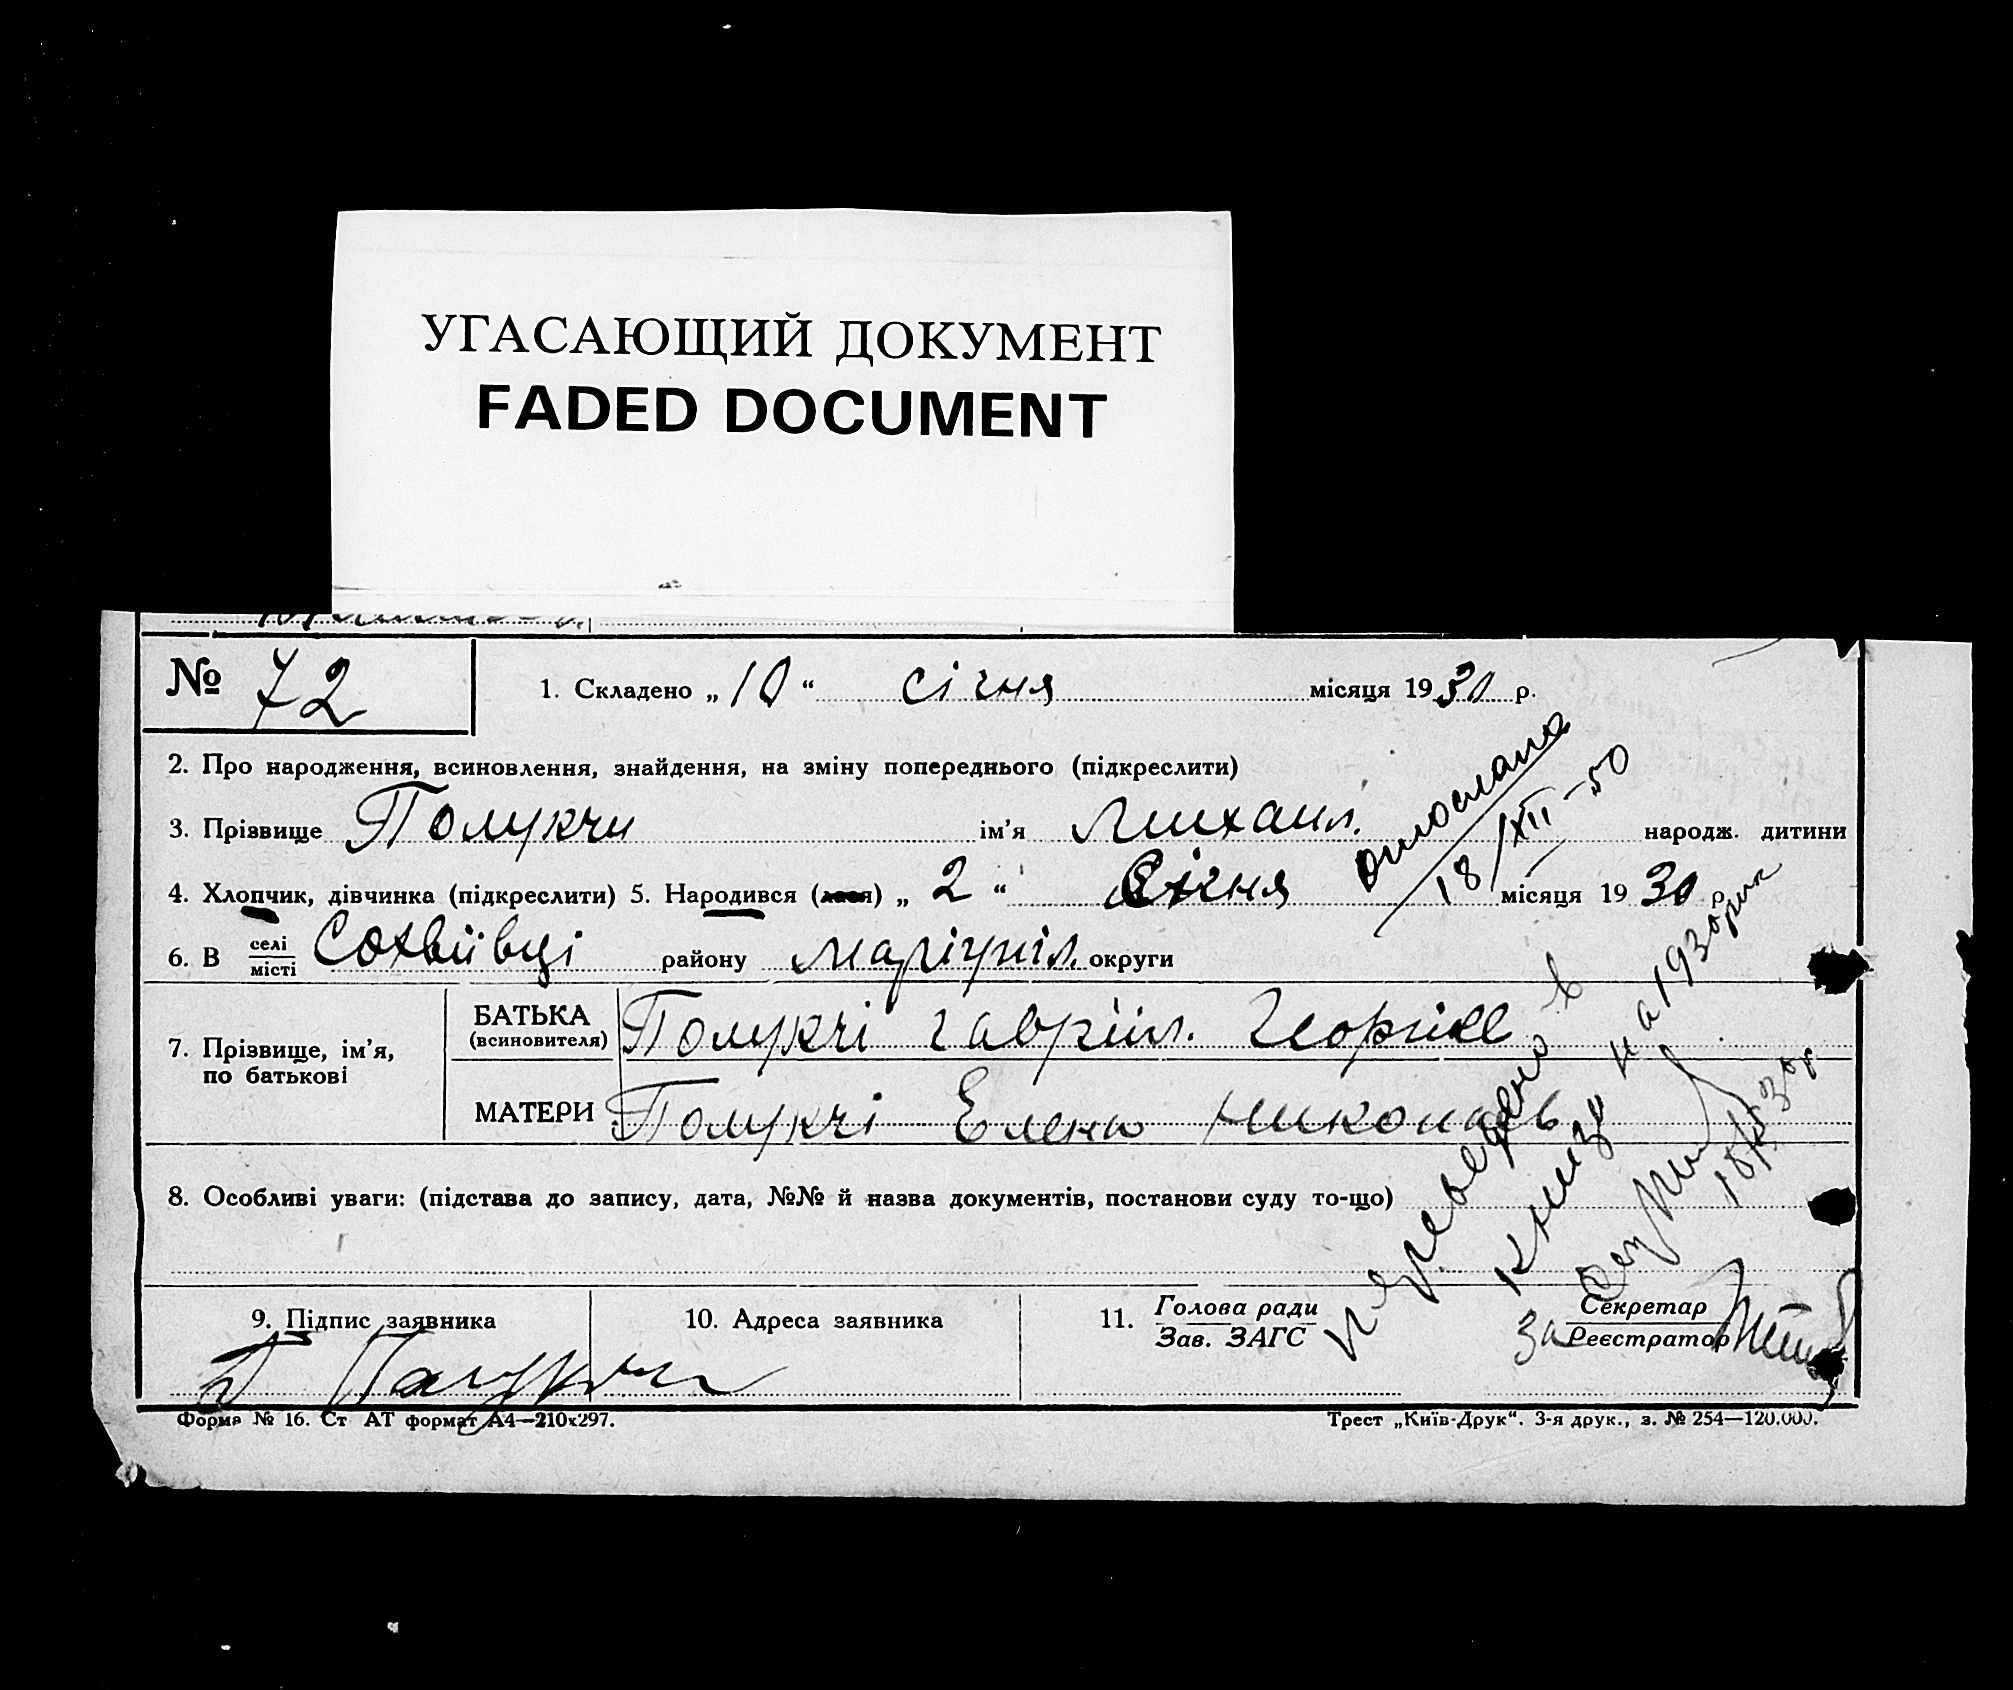 УГАСАЮЩИЙ ДОКУМЕНТ
FADED DOCUMENT
№ 72
1. Складено „ 10 “ січня місяця 1930 р.
2. Про народження, всиновлення, знайдення, на зміну попереднього (підкреслити)
3. Прізвище Полукчи ім'я Михаил. народж. дитини
4. Хлопчик, дівчинка (підкреслити) 5. Народився (лася) „ 2 “ Січня місяця 1930 р.
6. В селі
місті
Сохвіївці району Маріупіл. округи
7. Прізвище, ім'я,
по батькові
БАТЬКА
(всиновителя)
Полукчі Гавріїл. Георгіев
МАТЕРИ Полукчі Елена Николаев
8. Особливі уваги: (підстава до запису, дата, №№ й назва документів, постанови суду то-що)
9. Підпис заявника
10. Адреса заявника
11. Голова ради
Зав. ЗАГС
За Секретар
Реєстратор
Форма № 16. Ст АТ формат А4—210x297.
Трест „Київ-Друк“. 3-я друк., з. № 254—120.000.
18/XII-50
переведено в
книзи на 1930 рик